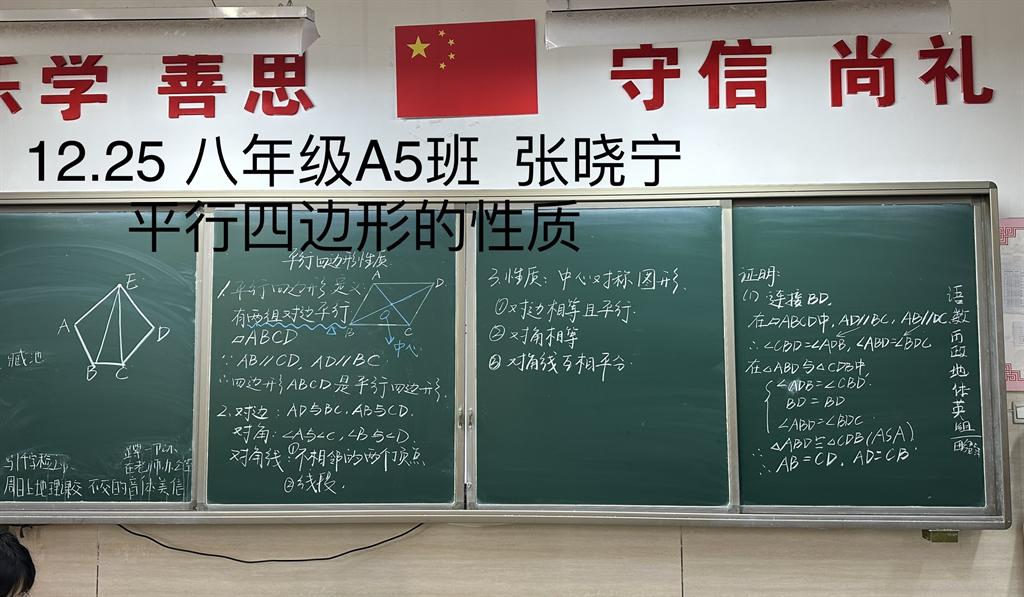 乐学 善思 守信 尚礼
12.25 八年级A5班 张晓宁
平行四边形的性质
E
A
D
B C
臧池
周日上地理课交 不交的音体美信
平行四边形性质
1.平行四边形定义:
有两组对边平行
▱ABCD
∵AB∥CD, AD∥BC
∴四边形ABCD是平行四边形.
2.对边: AD与BC, AB与CD.
对角: ∠A与∠C, ∠B与∠D.
对角线: ①不相邻的两个顶点
②线段.
A D
O
B C
中心
3.性质: 中心对称图形.
①对边相等且平行.
②对角相等
③对角线互相平分.
证明:
(1) 连接BD.
在▱ABCD中, AD∥BC, AB∥DC.
∴∠CBD=∠ADB, ∠ABD=∠BDC
在△ABD与△CDB中,
∠ADB=∠CBD.
BD=BD
∠ABD=∠BDC
∴△ABD≌△CDB(ASA).
∴AB=CD. AD=CB.
语
数
历
政
地
体
英